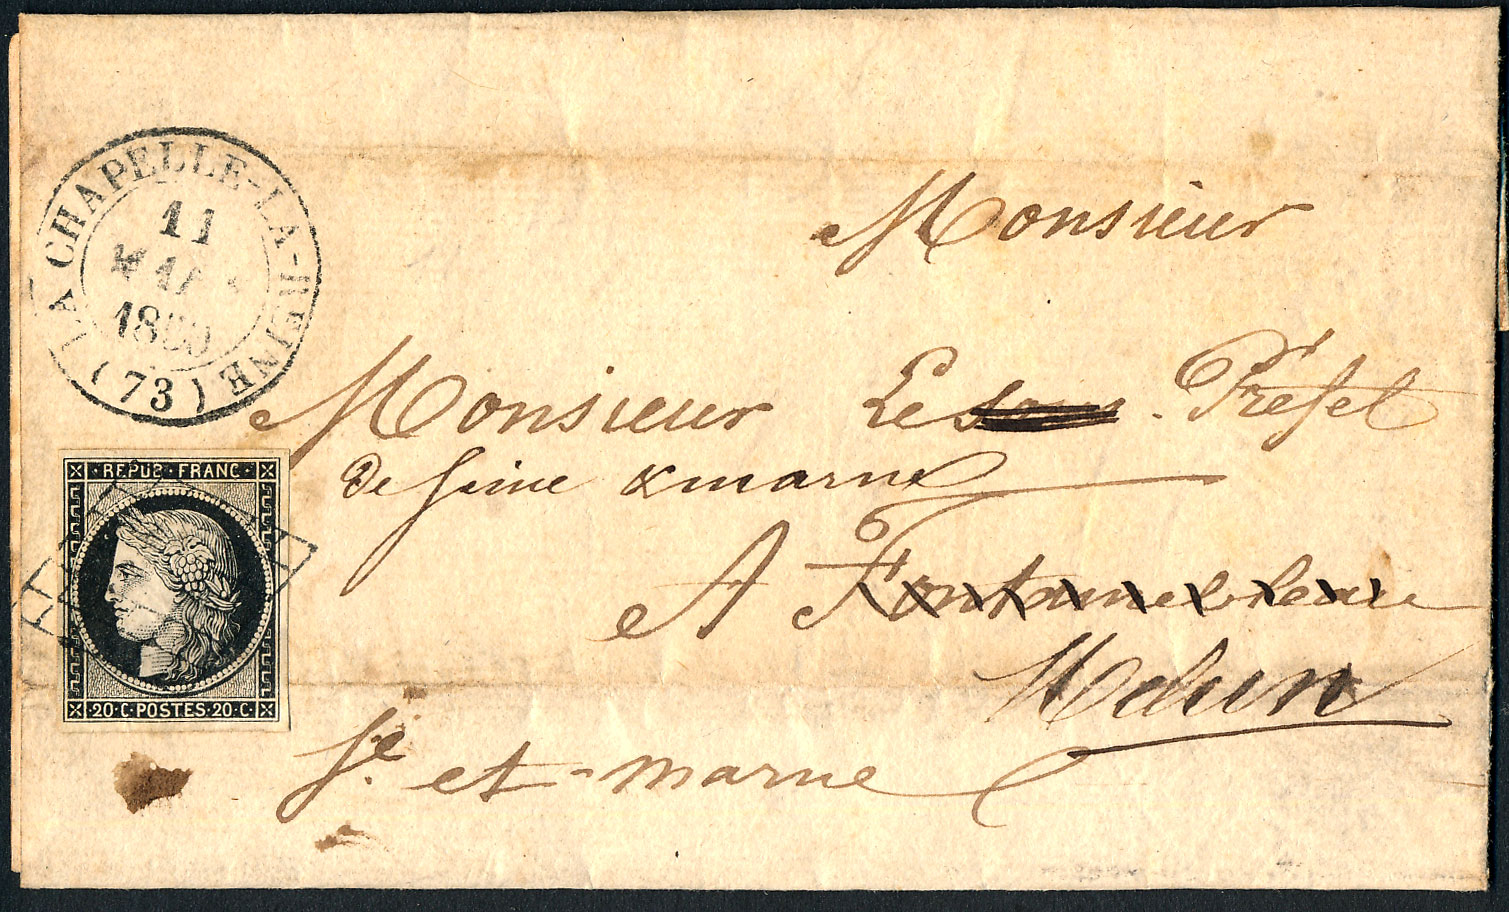 LA CHAPELLE-LA-REINE
11
MAI
1850
(73)
REPUB FRANC
20·C·POSTES·20·C
Monsieur
Monsieur Le sous Préfet
de Seine & marne
A Fontainebleau
Melun
Se et-marne